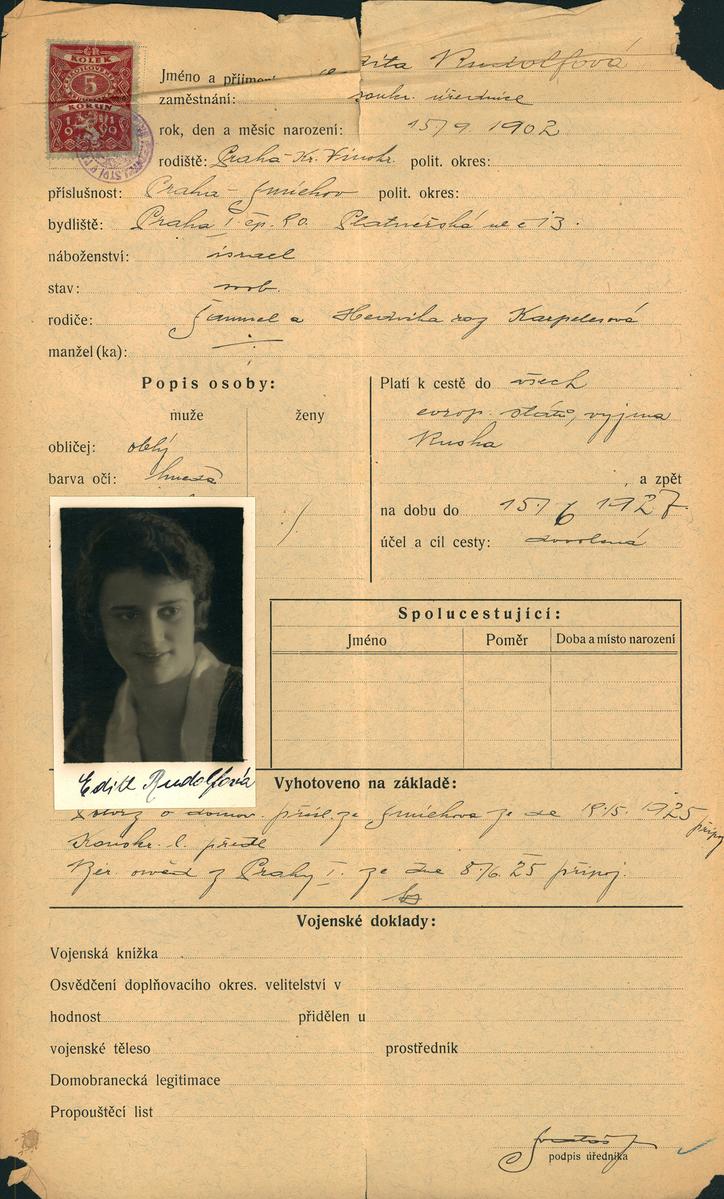 ČR
KOLEK
5
KORUN
1919
Jméno a příjmení Edita Rudolfová
zaměstnání: soukr. úřednice
rok, den a měsíc narození: 15/9. 1902
rodiště: Praha-Kr. Vinohr. polit. okres:
příslušnost: Praha-Smíchov polit. okres:
bydliště: Praha I. čp. 90. Platnéřská ul č 13.
náboženství: israel
stav: svob.
rodiče: Samuel a Hedvika roz Karpelesová
manžel(ka):
Popis osoby:
muže ženy
obličej: oblý
barva očí: hnědá
Platí k cestě do všech
evrop. států, vyjma
Ruska
, a zpět
na dobu do 15/6 1927
účel a cíl cesty:
Spolucestující:
Jméno Poměr Doba a místo narození
Edith Rudolfová
Vyhotoveno na základě:
o domov. přísl. ze Smíchova ze dne 19./5. 1925 připoj
Konskr. l. předl
Ber. osvěd z Prahy I. ze dne 8./6. 25 připoj.
Vojenské doklady:
Vojenská knížka
Osvědčení doplňovacího okres. velitelství v
hodnost přidělen u
vojenské těleso prostředník
Domobranecká legitimace
Propouštěcí list
podpis úředníka